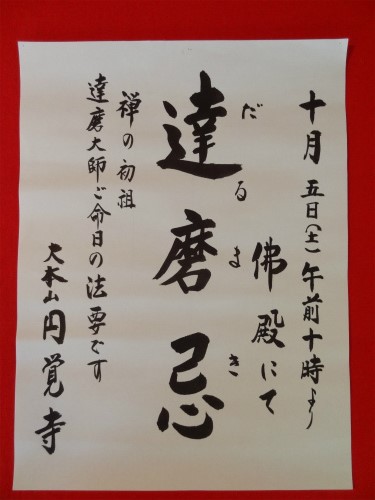 十月五日(土)午前十時より
佛殿にて
だるまき
達磨忌
禅の初祖
達磨大師ご命日の法要です
大本山円覚寺